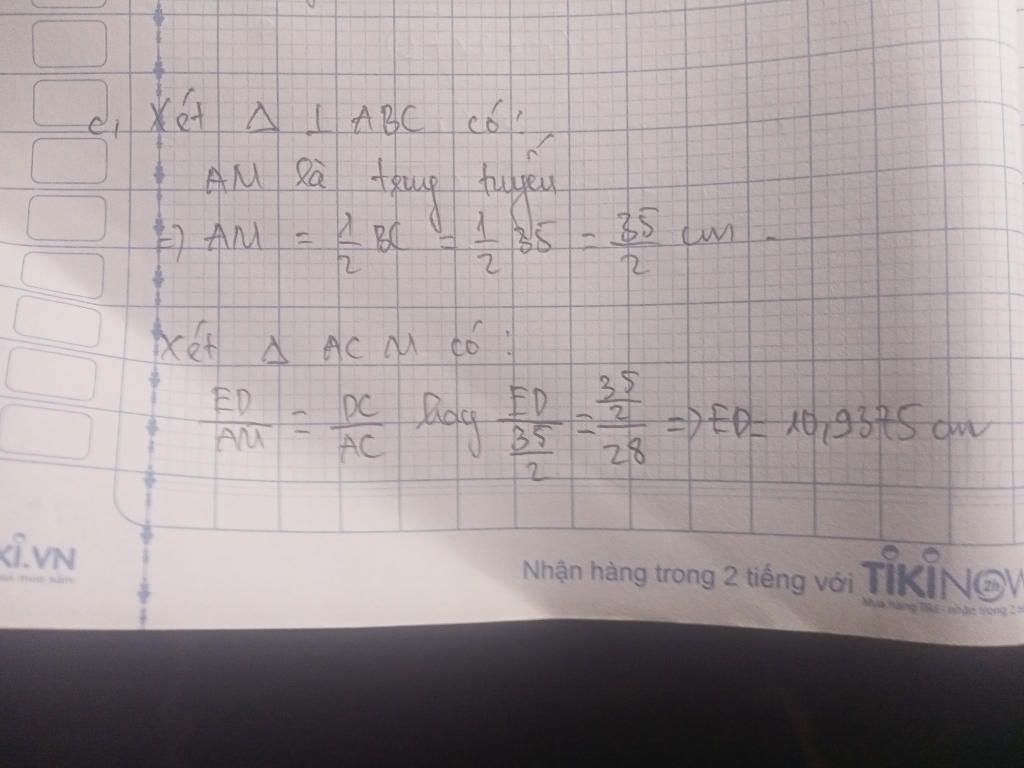 c, Xét Δ ⊥ ABC có:
AM là trung tuyến
=> AM = 1/2 BC = 1/2 35 = 35/2 cm.
Xét Δ ACM có:
ED/AM = DC/AC hay ED/(35/2) = (35/2)/28 => ED = 10,9375 cm
KI.VN
Nhận hàng trong 2 tiếng với TIKINOW